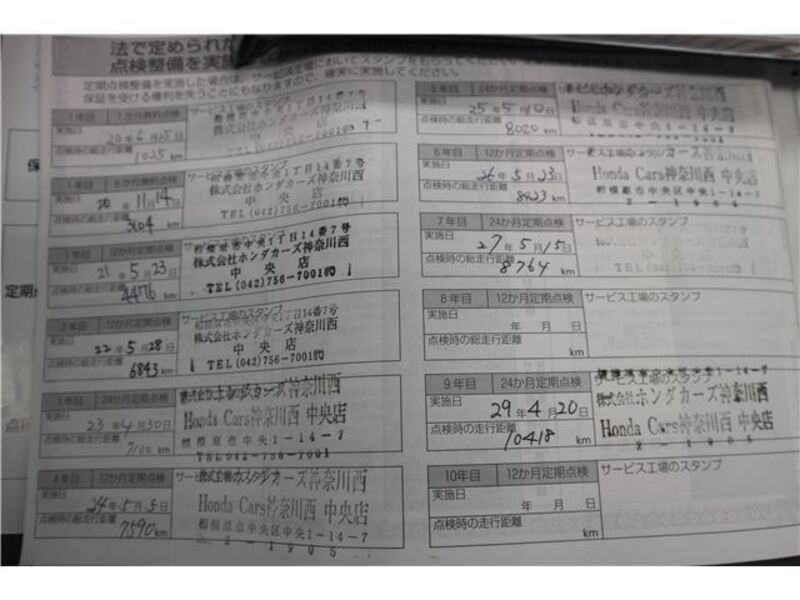 法で定められた
点検整備を実施
においてスタンプをもらってください。
定期点検整備を実施した場合は、サービス工場
保証を受ける権利を失うことにもなりますので、確実に実施してください。
1年目 1か月無料点検 サービス工場のスタンプ
実施日 20年6月25日
点検時の総走行距離
1025 km
相模原市中央1丁目14番7号
株式会社ホンダカーズ神奈川西
中央店
TEL(042)756-7001
1年目 6か月無料点検 サービス工場のスタンプ
実施日 20年11月14日
点検時の総走行距離
3104 km
相模原市中央1丁目14番7号
株式会社ホンダカーズ神奈川西
中央店
TEL(042)756-7001
1年目 12か月定期点検
実施日 21年5月23日
点検時の総走行距離
4476 km
相模原市中央1丁目14番7号
株式会社ホンダカーズ神奈川西
中央店
TEL(042)756-7001
2年目 12か月定期点検 サービス工場のスタンプ
実施日 22年5月28日
点検時の総走行距離
6843 km
相模原市中央1丁目14番7号
株式会社ホンダカーズ神奈川西
中央店
TEL(042)756-7001
3年目 24か月定期点検
実施日 23年4月30日
点検時の総走行距離
7100 km
株式会社ホンダカーズ神奈川西
Honda Cars神奈川西 中央店
相模原市中央1-14-7
042-756-7001
4年目 12か月定期点検
実施日 24年5月5日
点検時の総走行距離
7590 km
株式会社ホンダカーズ神奈川西
Honda Cars神奈川西 中央店
相模原市中央区中央1-14-7
5年目 24か月定期点検
実施日 25年5月10日
点検時の総走行距離
8020 km
株式会社ホンダカーズ神奈川西
Honda Cars神奈川西 中央店
相模原市中央区中央1-14-7
6年目 12か月定期点検
実施日 26年5月23日
点検時の総走行距離
8423 km
Honda Cars神奈川西 中央店
相模原市中央区中央1-14-7
7年目 24か月定期点検 サービス工場のスタンプ
実施日 27年5月15日
点検時の総走行距離
8764 km
8年目 12か月定期点検 サービス工場のスタンプ
実施日 年 月 日
点検時の総走行距離
km
9年目 24か月定期点検 サービス工場のスタンプ
実施日 29年4月20日
点検時の走行距離
10418 km
株式会社ホンダカーズ神奈川西
Honda Cars神奈川西 中央店
10年目 12か月定期点検 サービス工場のスタンプ
実施日 年 月 日
点検時の走行距離
km